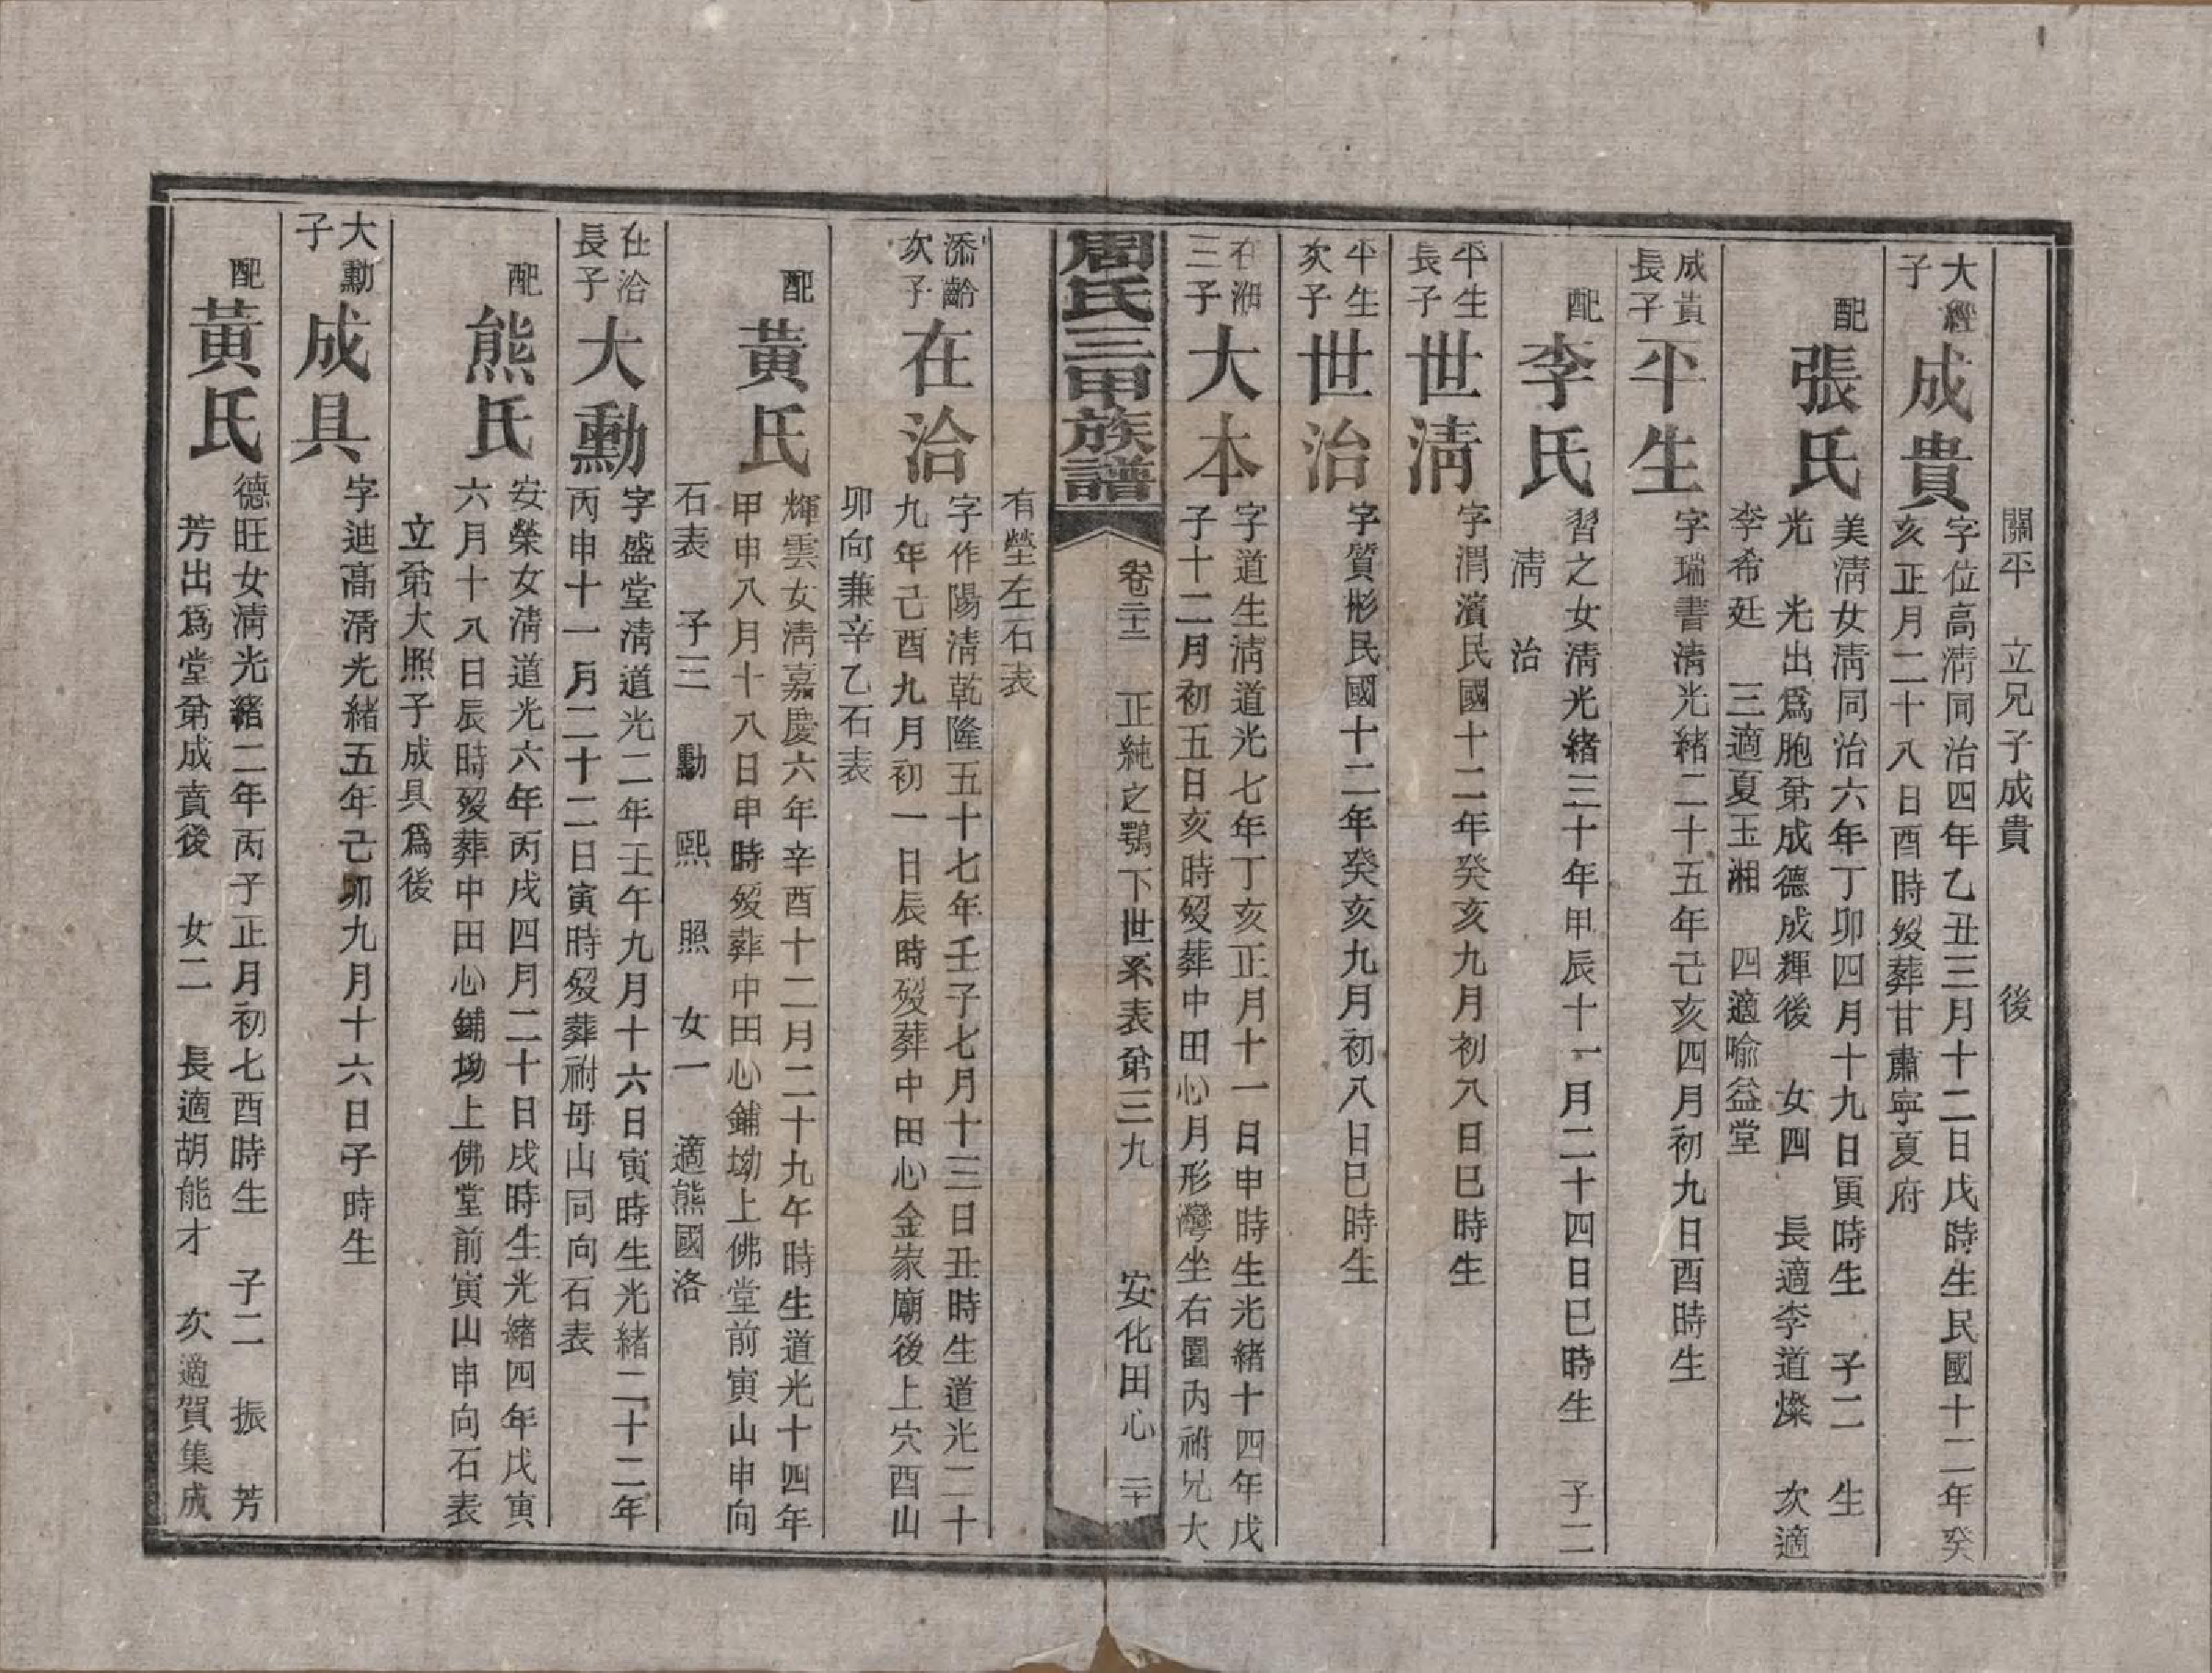 關平　立兄子成貴　後
大經子
成貴
字位高淸同治四年乙丑三月十二日戌時生民國十二年癸
亥正月二十八日酉時歿葬甘肅寧夏府
配
張氏
美淸女淸同治六年丁卯四月十九日寅時生　子二　生
光　光出爲胞弟成德成輝後　女四　長適李道燦　次適
李希廷　三適夏玉湘　四適喻益堂
成貴長子
平生
字瑞書淸光緒二十五年己亥四月初九日酉時生
配
李氏
習之女淸光緒三十年甲辰十一月二十四日巳時生　子二
淸　治
平生長子
世淸
字渭濱民國十二年癸亥九月初八日巳時生
平生次子
世治
字質彬民國十二年癸亥九月初八日巳時生
在湘三子
大本
字道生淸道光七年丁亥正月十一日申時生光緒十四年戊
子十二月初五日亥時歿葬中田心月形灣坐右園內祔兄大
周氏三甲族譜
卷二十三　正純之鶚下世系表第三九　安化田心　二十
有塋左石表
添齡次子
在洽
字作陽淸乾隆五十七年壬子七月十三日丑時生道光二十
九年己酉九月初一日辰時歿葬中田心金家廟後上穴酉山
卯向兼辛乙石表
配
黃氏
輝雲女淸嘉慶六年辛酉十二月二十九午時生道光十四年
甲申八月十八日申時歿葬中田心鋪坳上佛堂前寅山申向
石表　子三　勳　熙　照　女一　適熊國洛
在洽長子
大勳
字盛堂淸道光二年壬午九月十六日寅時生光緒二十二年
丙申十一月二十二日寅時歿葬祔母山同向石表
配
熊氏
安榮女淸道光六年丙戌四月二十日戌時生光緒四年戊寅
六月十八日辰時歿葬中田心鋪坳上佛堂前寅山申向石表
立弟大照子成具爲後
大勳子
成具
字迪高淸光緒五年己卯九月十六日子時生
配
黃氏
德旺女淸光緒二年丙子正月初七酉時生　子二　振　芳
芳出爲堂弟成賁後　女二　長適胡能才　次適賀集成